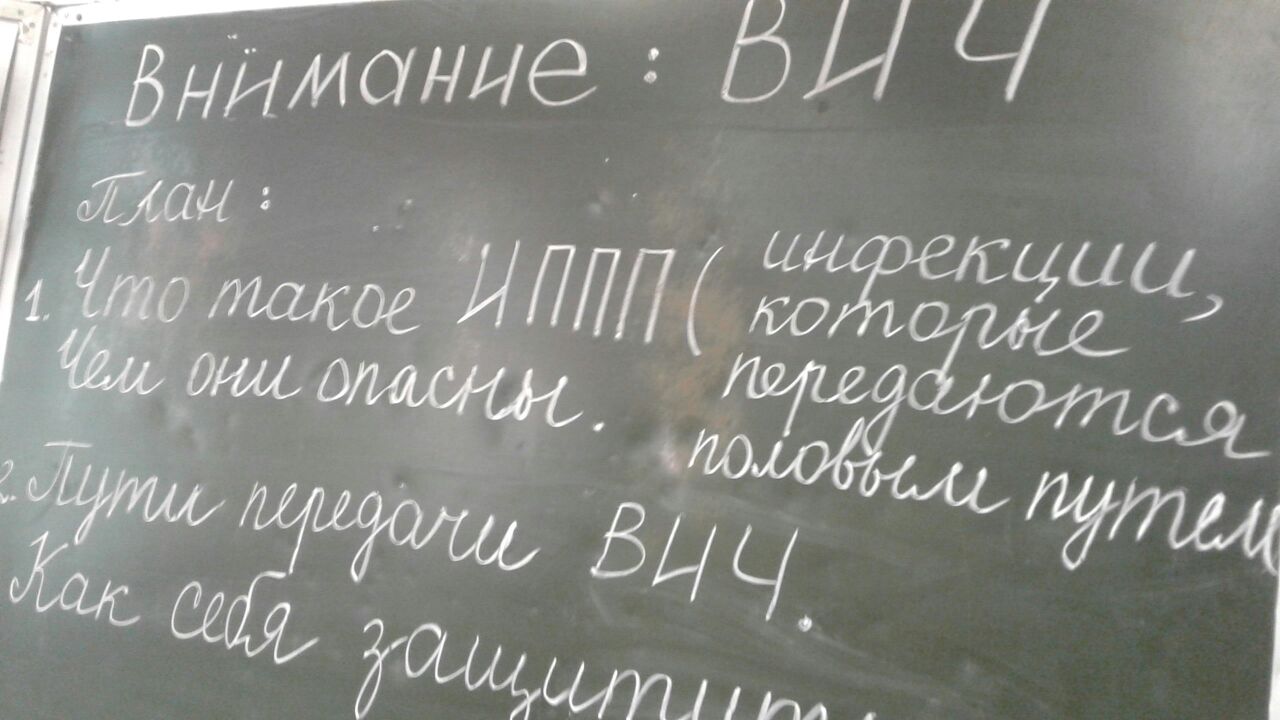 Внимание: ВИЧ
План:
1. Что такое ИППП (инфекции,
которые
передаются
половым путем
Чем они опасны.
2. Пути передачи ВИЧ.
Как себя защитить